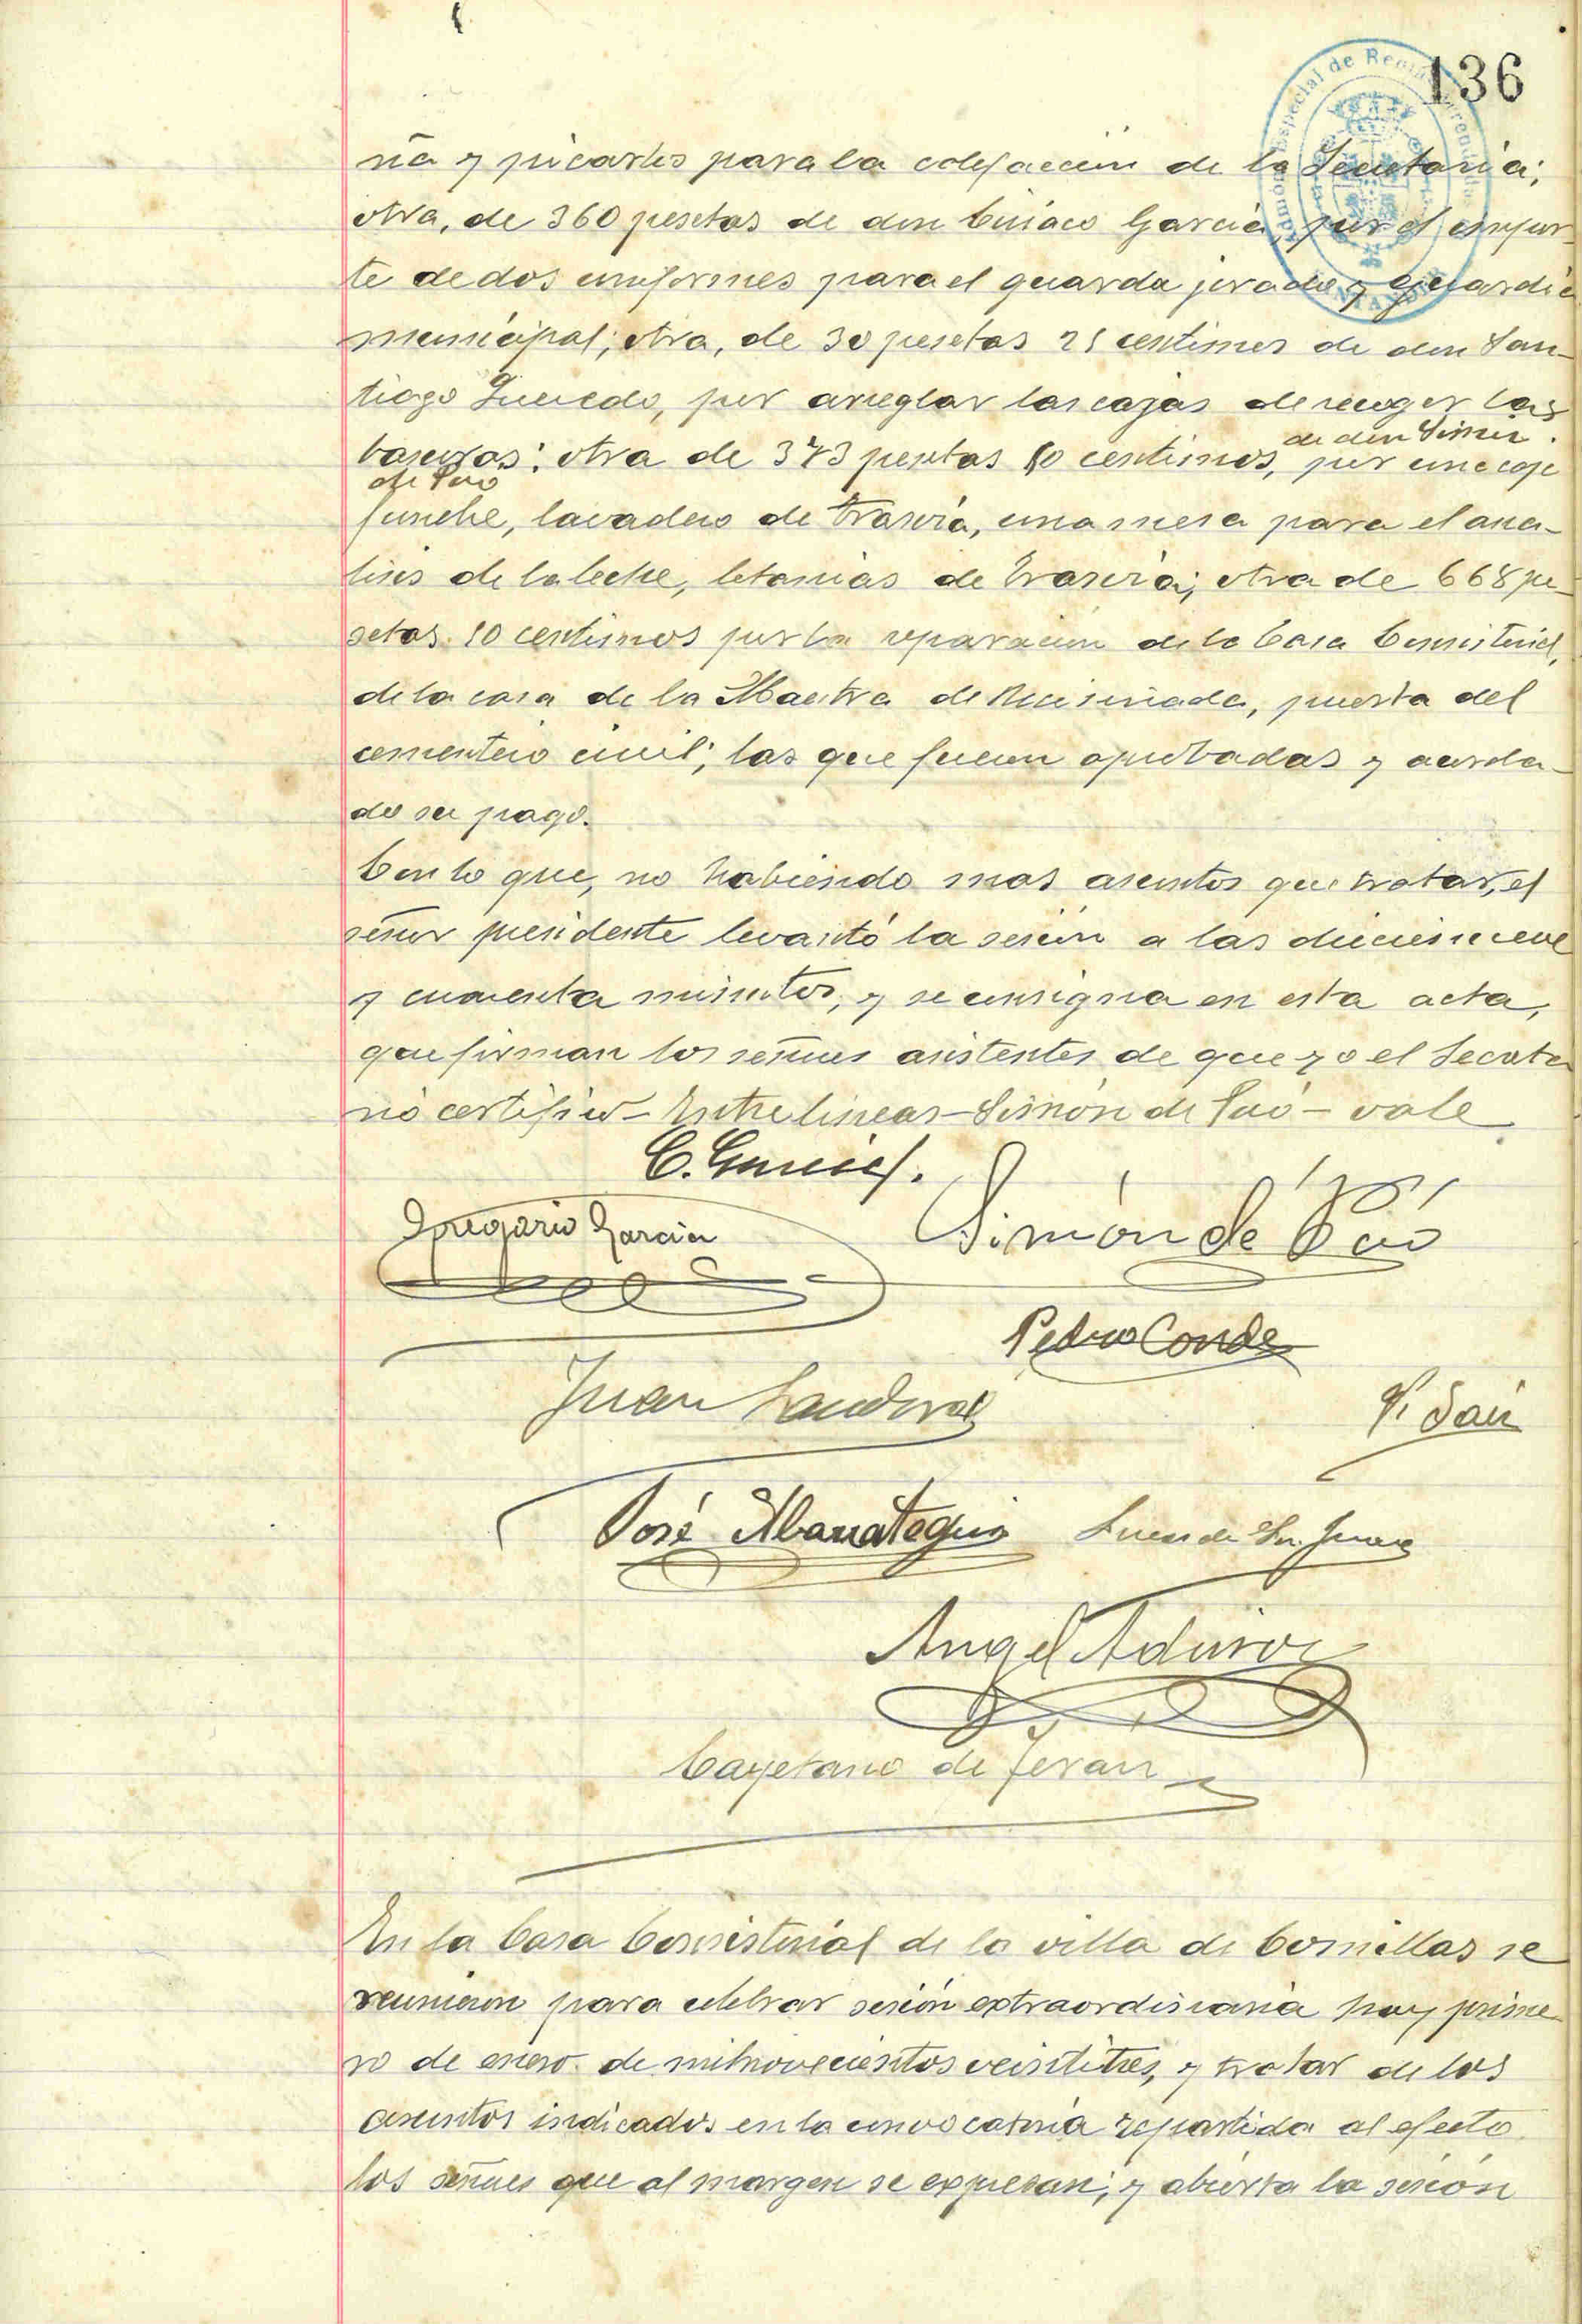 136
ña y picarlos para la calefacción de la Secretaría;
otra, de 360 pesetas de don Ciriaco García, por el impor-
te de dos uniformes para el guarda jurado y guardia
municipal; otra, de 30 pesetas 25 centimos de don San-
tiago Quevedo, por arreglar las cajas de recoger las
de don Simón
basuras; otra de 373 pesetas 80 centimos, por una caja
de Páo
funebre, lavadero de Trasvía, una mesa para el aná-
lisis de la leche, letanias de Trasvía; otra de 668 pe-
setas 10 centimos por la reparación de la Casa Consistorial,
de la casa de la Maestra de Ruiseñada, puerta del
cementerio civil; las que fueron aprobadas y acorda-
do su pago.
Con lo que, no habiendo mas asuntos que tratar, el
señor presidente levantó la sesión a las diecinueve
y cuarenta minutos, y se consigna en esta acta,
que firman los señores asistentes de que yo el Secreta
rio certifico - Entre lineas - Simón de Páo - vale
C. García.
Gregorio Garcia
Simón de Páo
Pedro Conde
Juan Sandoval
José Abarrategui
Angel
Cayetano de Terán
En la Casa Consistorial de la villa de Comillas se
reunieron para celebrar sesión extraordinaria hoy prime-
ro de enero de mil novecientos veintitres, y tratar de los
asuntos indicados en la convocatoria repartida al efecto
los señores que al margen se expresan; y abierta la sesión